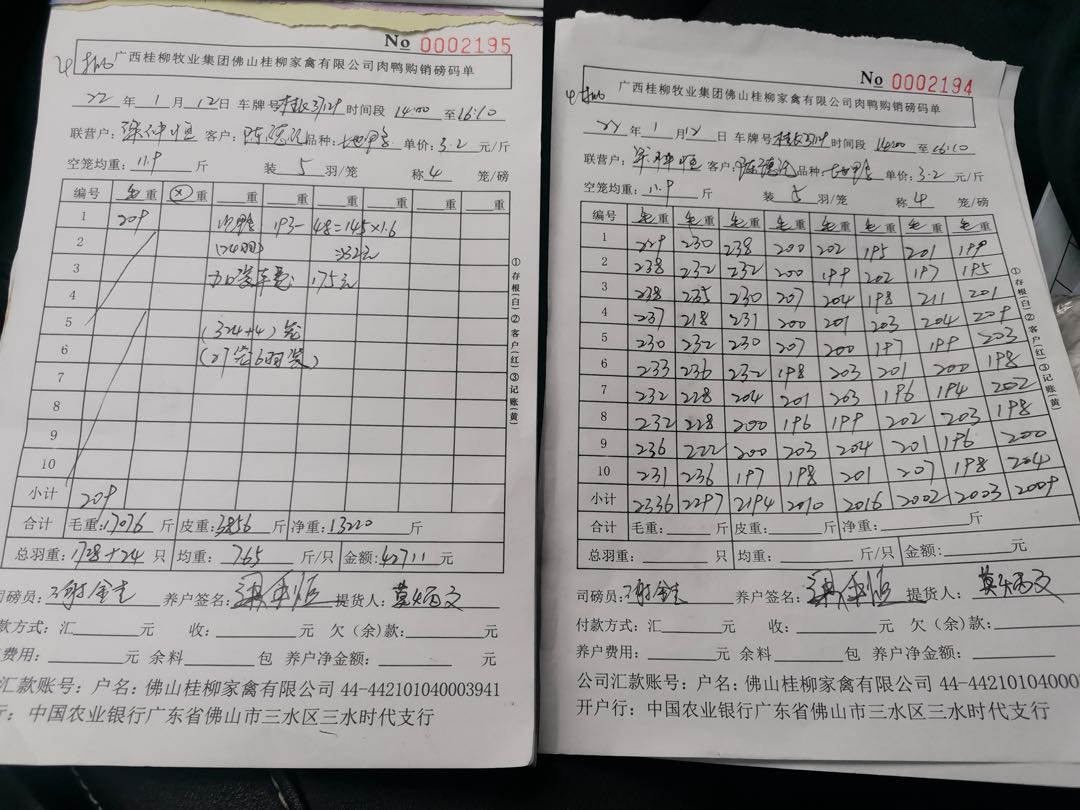 No 0002195
广西桂柳牧业集团佛山桂柳家禽有限公司肉鸭购销磅码单
22 年 1 月 12 日 车牌号 时间段 14:00 至 16:10
联营户: 客户: 品种: 单价: 3.2 元/斤
空笼均重: 11.9 斤 装 5 羽/笼 称 4 笼/磅
编号 毛重 重 重 重 重 重 重 重
1 209 193-48=145×1.6
2
3 加装车费 175元
4
5 (324+4)笼
6 (27笼6羽装)
7
8
9
10
小计 209
合计 毛重: 17076 斤 皮重: 3856 斤 净重: 13220 斤
总羽重: 1728+24 只 均重: 7.65 斤/只 金额: 42711 元
司磅员: 养户签名: 提货人: 莫炳文
款方式: 汇 元 收: 元 欠(余)款: 元
费用: 元 余料 包 养户净金额: 元
汇款账号: 户名: 佛山桂柳家禽有限公司 44-442101040003941
行: 中国农业银行广东省佛山市三水区三水时代支行
①存根(白)②客户(红)③记账(黄)
No 0002194
广西桂柳牧业集团佛山桂柳家禽有限公司肉鸭购销磅码单
22 年 1 月 12 日 车牌号 时间段 14:00 至 16:10
联营户: 客户: 品种: 单价: 3.2 元/斤
空笼均重: 11.9 斤 装 5 羽/笼 称 4 笼/磅
编号 毛重 毛重 毛重 毛重 毛重 毛重 毛重 毛重
1 229 230 238 200 202 195 201 199
2 238 232 232 200 199 202 197 195
3 238 235 230 207 204 198 211 201
4 237 218 231 200 201 203 204 209
5 230 232 230 207 200 197 199 203
6 233 236 232 198 203 201 200 198
7 232 228 204 201 203 196 194 202
8 232 228 200 196 199 202 203 198
9 236 222 200 203 204 201 196 200
10 231 236 197 198 201 207 198 204
小计 2336 2297 2194 2010 2016 2002 2003 2009
合计 毛重: 斤 皮重: 斤 净重: 斤
总羽重: 只 均重: 斤/只 金额: 元
司磅员: 养户签名: 提货人: 莫炳文
付款方式: 汇 元 收: 元 欠(余)款: 元
养户费用: 元 余料 包 养户净金额: 元
公司汇款账号: 户名: 佛山桂柳家禽有限公司 44-44210104000
开户行: 中国农业银行广东省佛山市三水区三水时代支行
①存根(白)②客户(红)③记账(黄)